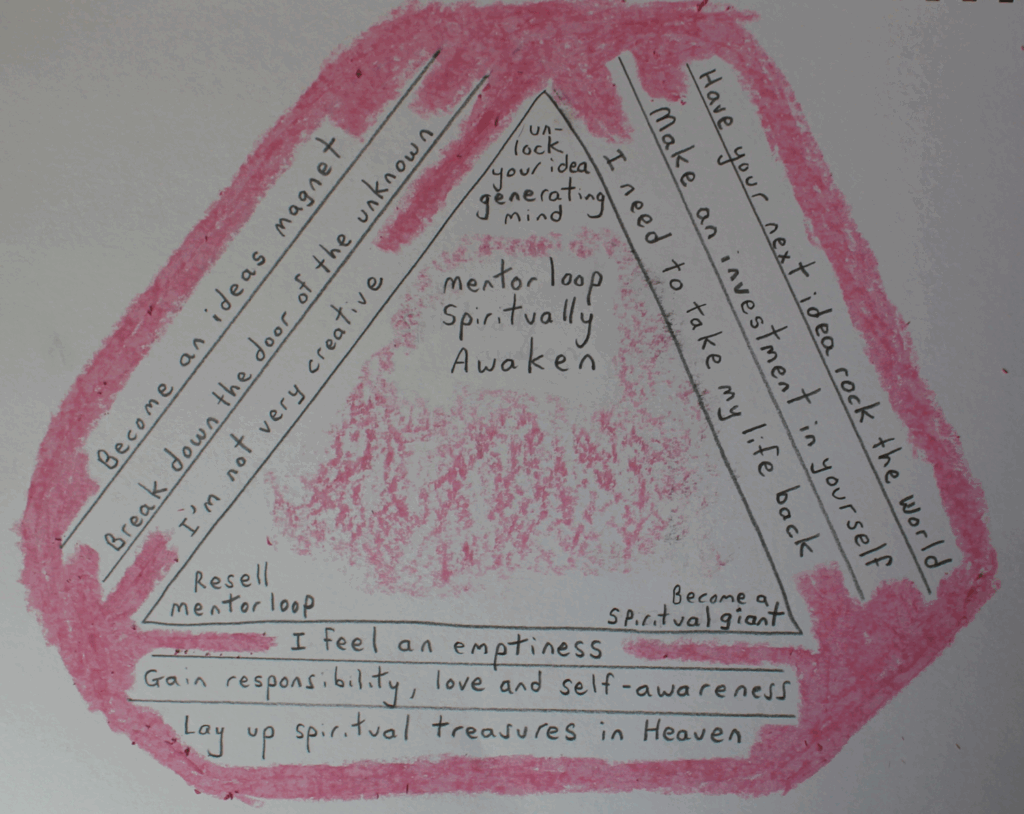 un-
lock
your idea
generating
mind
mentor loop
Spiritually
Awaken
Resell
mentor loop
Become a
Spiritual giant
Become an ideas magnet
Break down the door of the unknown
I'm not very creative
I need to take my life back
Make an investment in yourself
Have your next idea rock the world
I feel an emptiness
Gain responsibility, love and self-awareness
Lay up spiritual treasures in Heaven